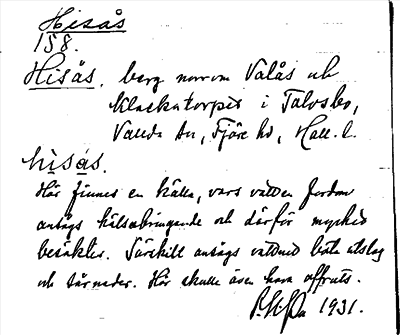 Hisås
158.
Hisås. berg norr om Valås och
i Talosbo,
Vallda sn, Fjäre hd, Hall. l.
hisås.
Här finnes en källa, vars vatten fordom
ansågs hälsobringande och därför mycket
besöktes. Särskilt ansågs vattnet bota utslag
och sårnader. Här skulle även hava offrats.
1931.